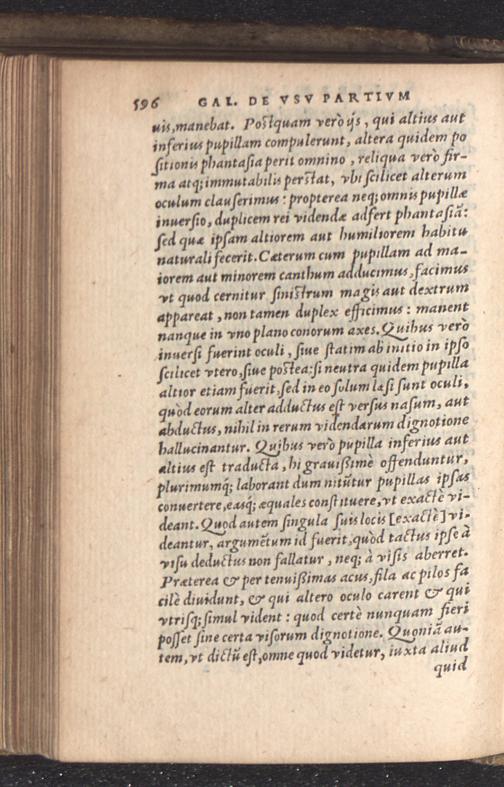 596 GAL. DE VSV PARTIVM
uis, manebat. Postquam verò ijs, qui altius aut
inferius pupillam compulerunt, altera quidem po
sitionis phantasia perit omnino, reliqua verò fir-
ma atq; immutabilis perstat, vbi scilicet alterum
oculum clauserimus: propterea neq; omnis pupillæ
inuersio, duplicem rei videndæ adfert phantasiã:
sed quæ ipsam altiorem aut humiliorem habitu
naturali fecerit. Cæterum cum pupillam ad ma-
iorem aut minorem canthum adducimus, facimus
vt quod cernitur sinistrum magis aut dextrum
appareat, non tamen duplex efficimus: manent
nanque in vno plano conorum axes. Quibus verò
inuersi fuerint oculi, siue statim ab initio in ipso
scilicet vtero, siue postea: si neutra quidem pupilla
altior etiam fuerit, sed in eo solum læsi sunt oculi,
quòd eorum alter adductus est versus nasum, aut
abductus, nihil in rerum videndarum dignotione
hallucinantur. Quibus verò pupilla inferius aut
altius est traducta, hi grauißimè offenduntur,
plurimumq́; laborant dum nitũtur pupillas ipsas
conuertere, easq́; æquales constituere, vt exactè vi-
deant. Quod autem singula suis locis [exactè] vi-
deantur, argumẽtum id fuerit, quòd tactus ipse à
visu deductus non fallatur, neq; à visis aberret.
Præterea & per tenuißimas acus, fila ac pilos fa
cilè diuidunt, & qui altero oculo carent & qui
vtrisq; simul vident: quod certè nunquam fieri
posset sine certa visorum dignotione. Quoniã au-
tem, vt dictũ est, omne quod videtur, iuxta aliud
quid